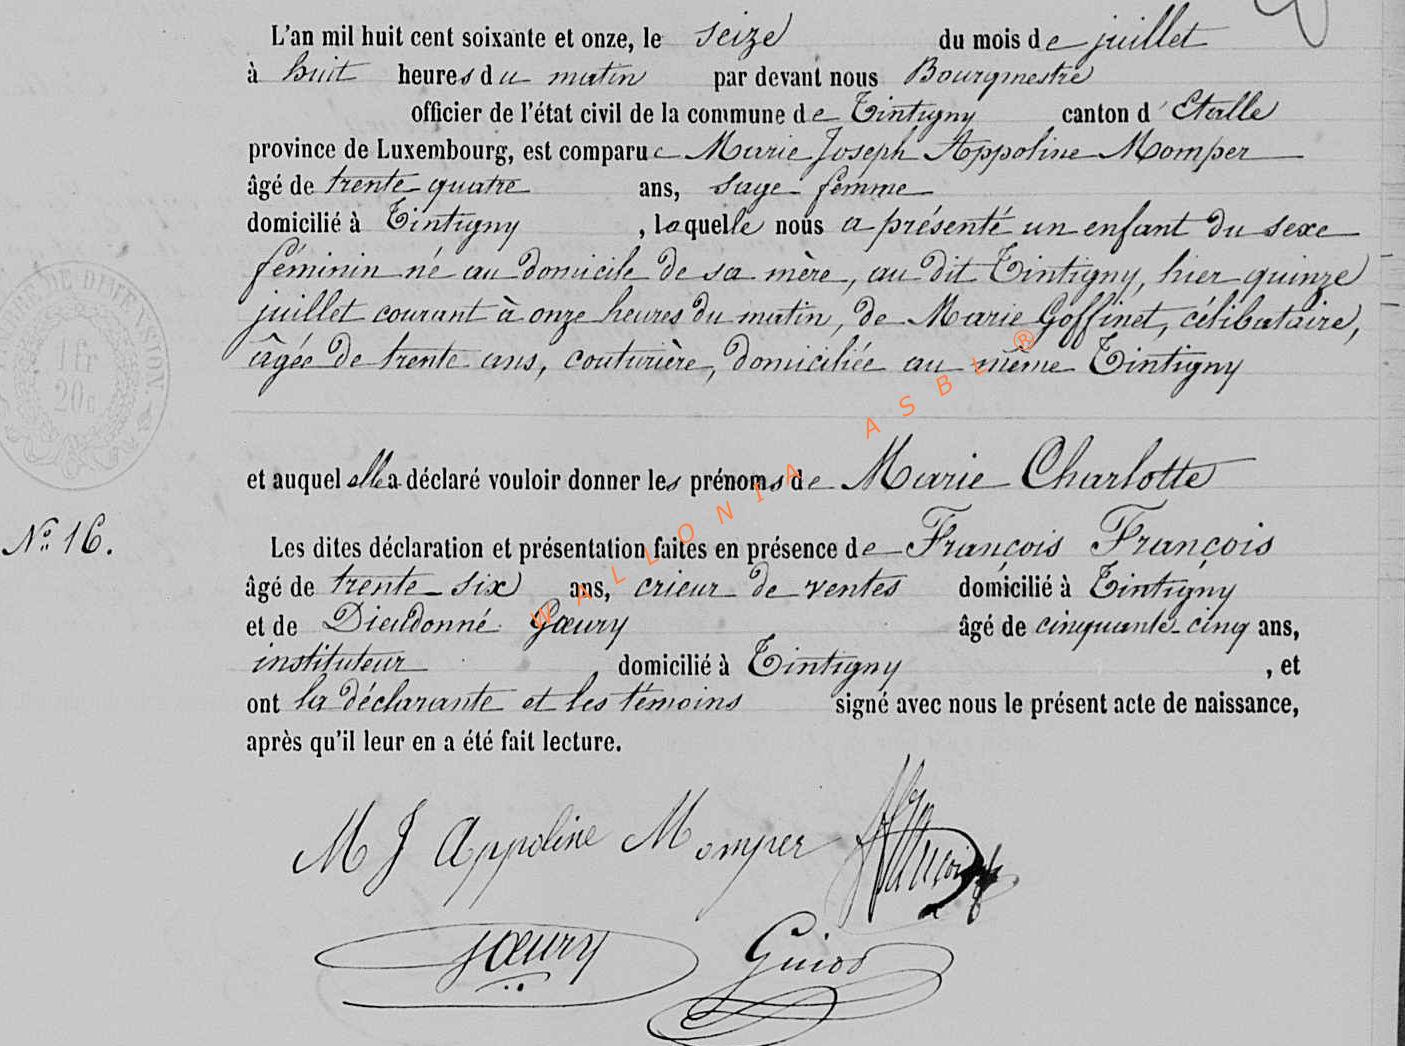 L'an mil huit cent soixante et onze, le seize du mois de juillet
à huit heures du matin par devant nous Bourgmestre
officier de l'état civil de la commune de Tintigny canton d'Etalle
province de Luxembourg, est comparue Marie Joseph Appoline Momper
âgé de trente quatre ans, sage femme
domicilié à Tintigny, laquelle nous a présenté un enfant du sexe
féminin né au domicile de sa mère, au dit Tintigny, hier quinze
juillet courant à onze heures du matin, de Marie Goffinet, célibataire,
âgée de trente ans, couturière, domiciliée au même Tintigny
TIMBRE DE DIMENSION.
1 fr
20c
et auquel elle a déclaré vouloir donner les prénoms de Marie Charlotte
N° 16.
Les dites déclaration et présentation faites en présence de François François
âgé de trente-six ans, crieur de ventes domicilié à Tintigny
et de Dieudonné Gœury âgé de cinquante-cinq ans,
instituteur domicilié à Tintigny, et
ont la déclarante et les témoins signé avec nous le présent acte de naissance,
après qu'il leur en a été fait lecture.
M J Appoline Momper François
Gœury Guiot
WALLONIA ASBL ®